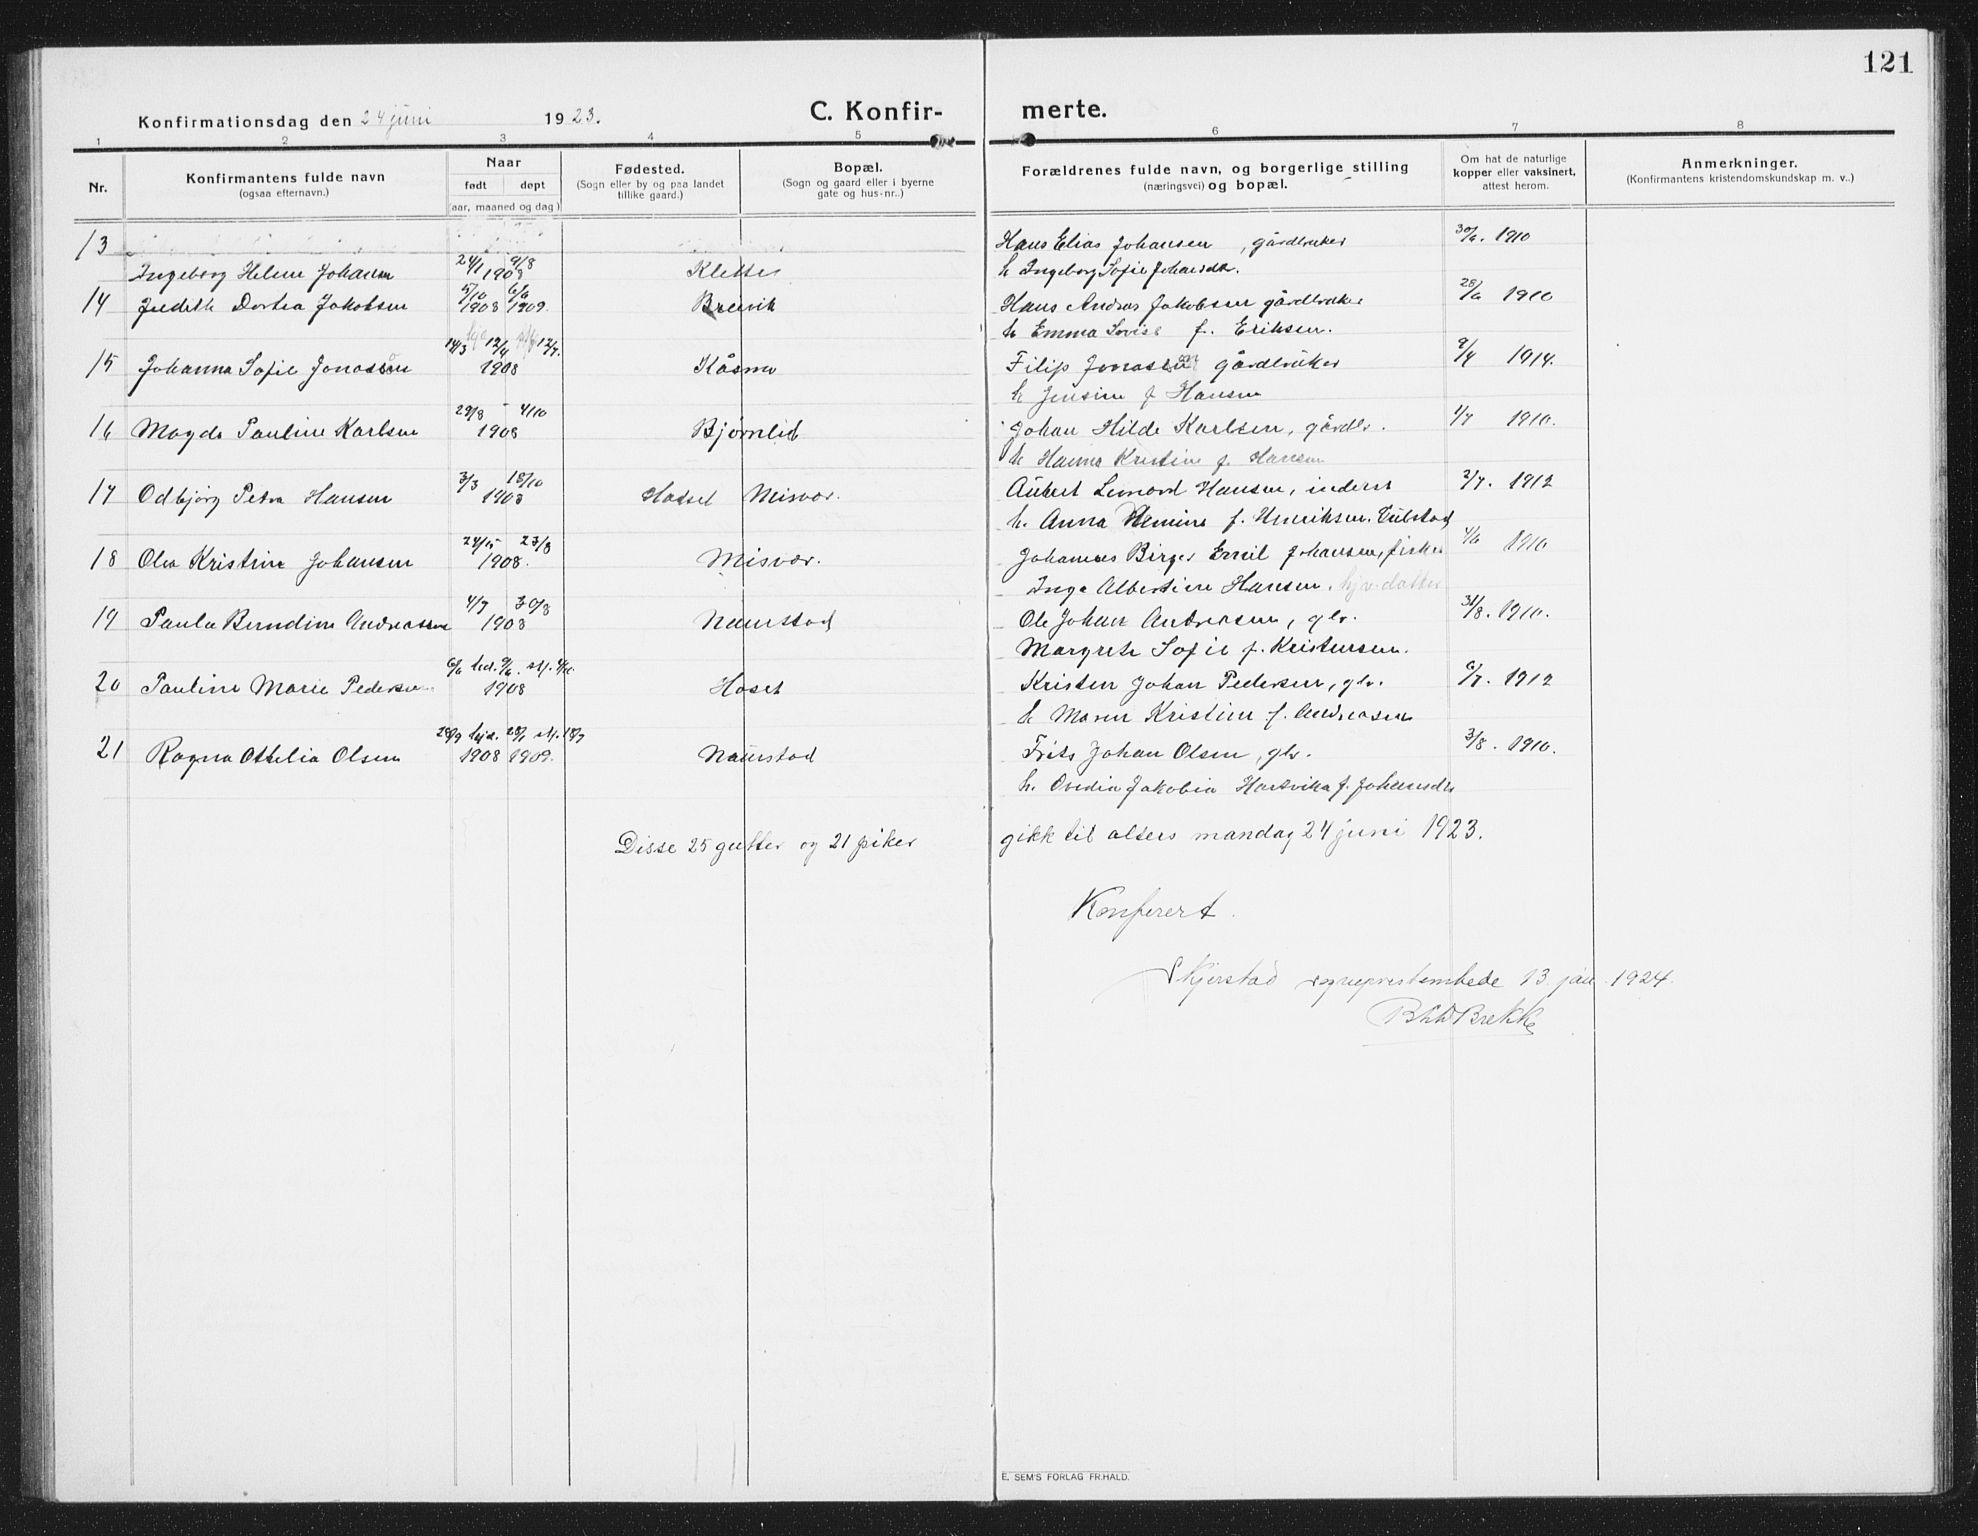 121
Konfirmationsdag den 24 juni 1923. C. Konfir- merte.
1 2 3 4 5 6 7 8
Nr. Konfirmantens fulde navn (ogsaa efternavn.) Naar født døpt (aar, maaned og dag) Fødested. (Sogn eller by og paa landet tillike gaard.) Bopæl. (Sogn og gaard eller i byerne gate og hus-nr..) Forældrenes fulde navn, og borgerlige stilling (næringsvei) og bopæl. Om hat de naturlige kopper eller vaksinert, attest herom. Anmerkninger. (Konfirmantens kristendomskundskap m. v..)
13 Hans Elias Johansen, gårdbruker 30/6. 1910
Ingeborg Helene Johansen 24/1 9/8 1908 h Ingeborg Sofie Johansdtr.
14 Judith Dortea Jakobsen 5/10 1908 6/6 1909. Breivik Hans Andreas Jakobsen gårdbruker 28/6 1910
h Emma Lovise f. Eriksen.
15 Johanna Sofie Jonassen 14/3 12/4 12/7. 1908 Kåsmo Filip Jonassen gårdbruker 9/4 1914.
h Jensine f Hansen
16 Magda Pauline Karlsen 29/8 - 4/10 1908 Bjørnlid Johan Hilde Karlsen, gårdbr. 1/7 1910.
h Hanna Kristine f. Hansen
17 Odbjørg Petra Hansen 3/3 18/10 1908 Hasset Misvær. Leonard Hansen, inderst 2/7. 1912
h. Anna f. Henriksen.
18 Olea Kristine Johansen 23/8 1908. Misvær. Johannes Birger Emil Johansen, fisker 4/6 1910
Inga Albertine Hansen.
19 Paula Berndine Andreassen 4/7 30/8 1908 Naurstad Ole Johan Andreasen, gbr. 31/8. 1910.
Margrete Sofie f. Kristensen.
20 Pauline Marie Pedersen 6/6 9/6. 1908 Hoset Kristen Johan Pedersen, gbr. 6/7. 1912
h Maren Kristine f. Andreasen
21 Ragna Othelia Olsen 28/9 hjd. 1908 1909. Naurstad Frits Johan Olsen, gbr. 3/8. 1910.
h. Ovedia Jakobia Hartvika f. Johansdtr
Disse 25 gutter og 21 piker gikk til alters mandag 24 juni 1923.
Konferert.
Skjerstad sogneprestembede 13 jan. 1924.
Brekke
E. SEM'S FORLAG FR.HALD.